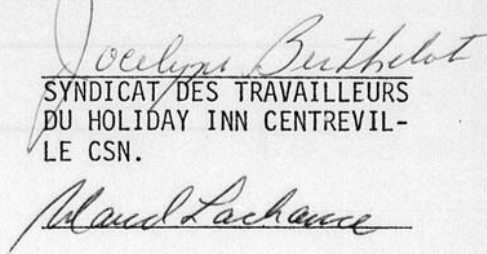 Jocelyn Berthelot
SYNDICAT DES TRAVAILLEURS
DU HOLIDAY INN CENTREVIL-
LE CSN.
Lachance